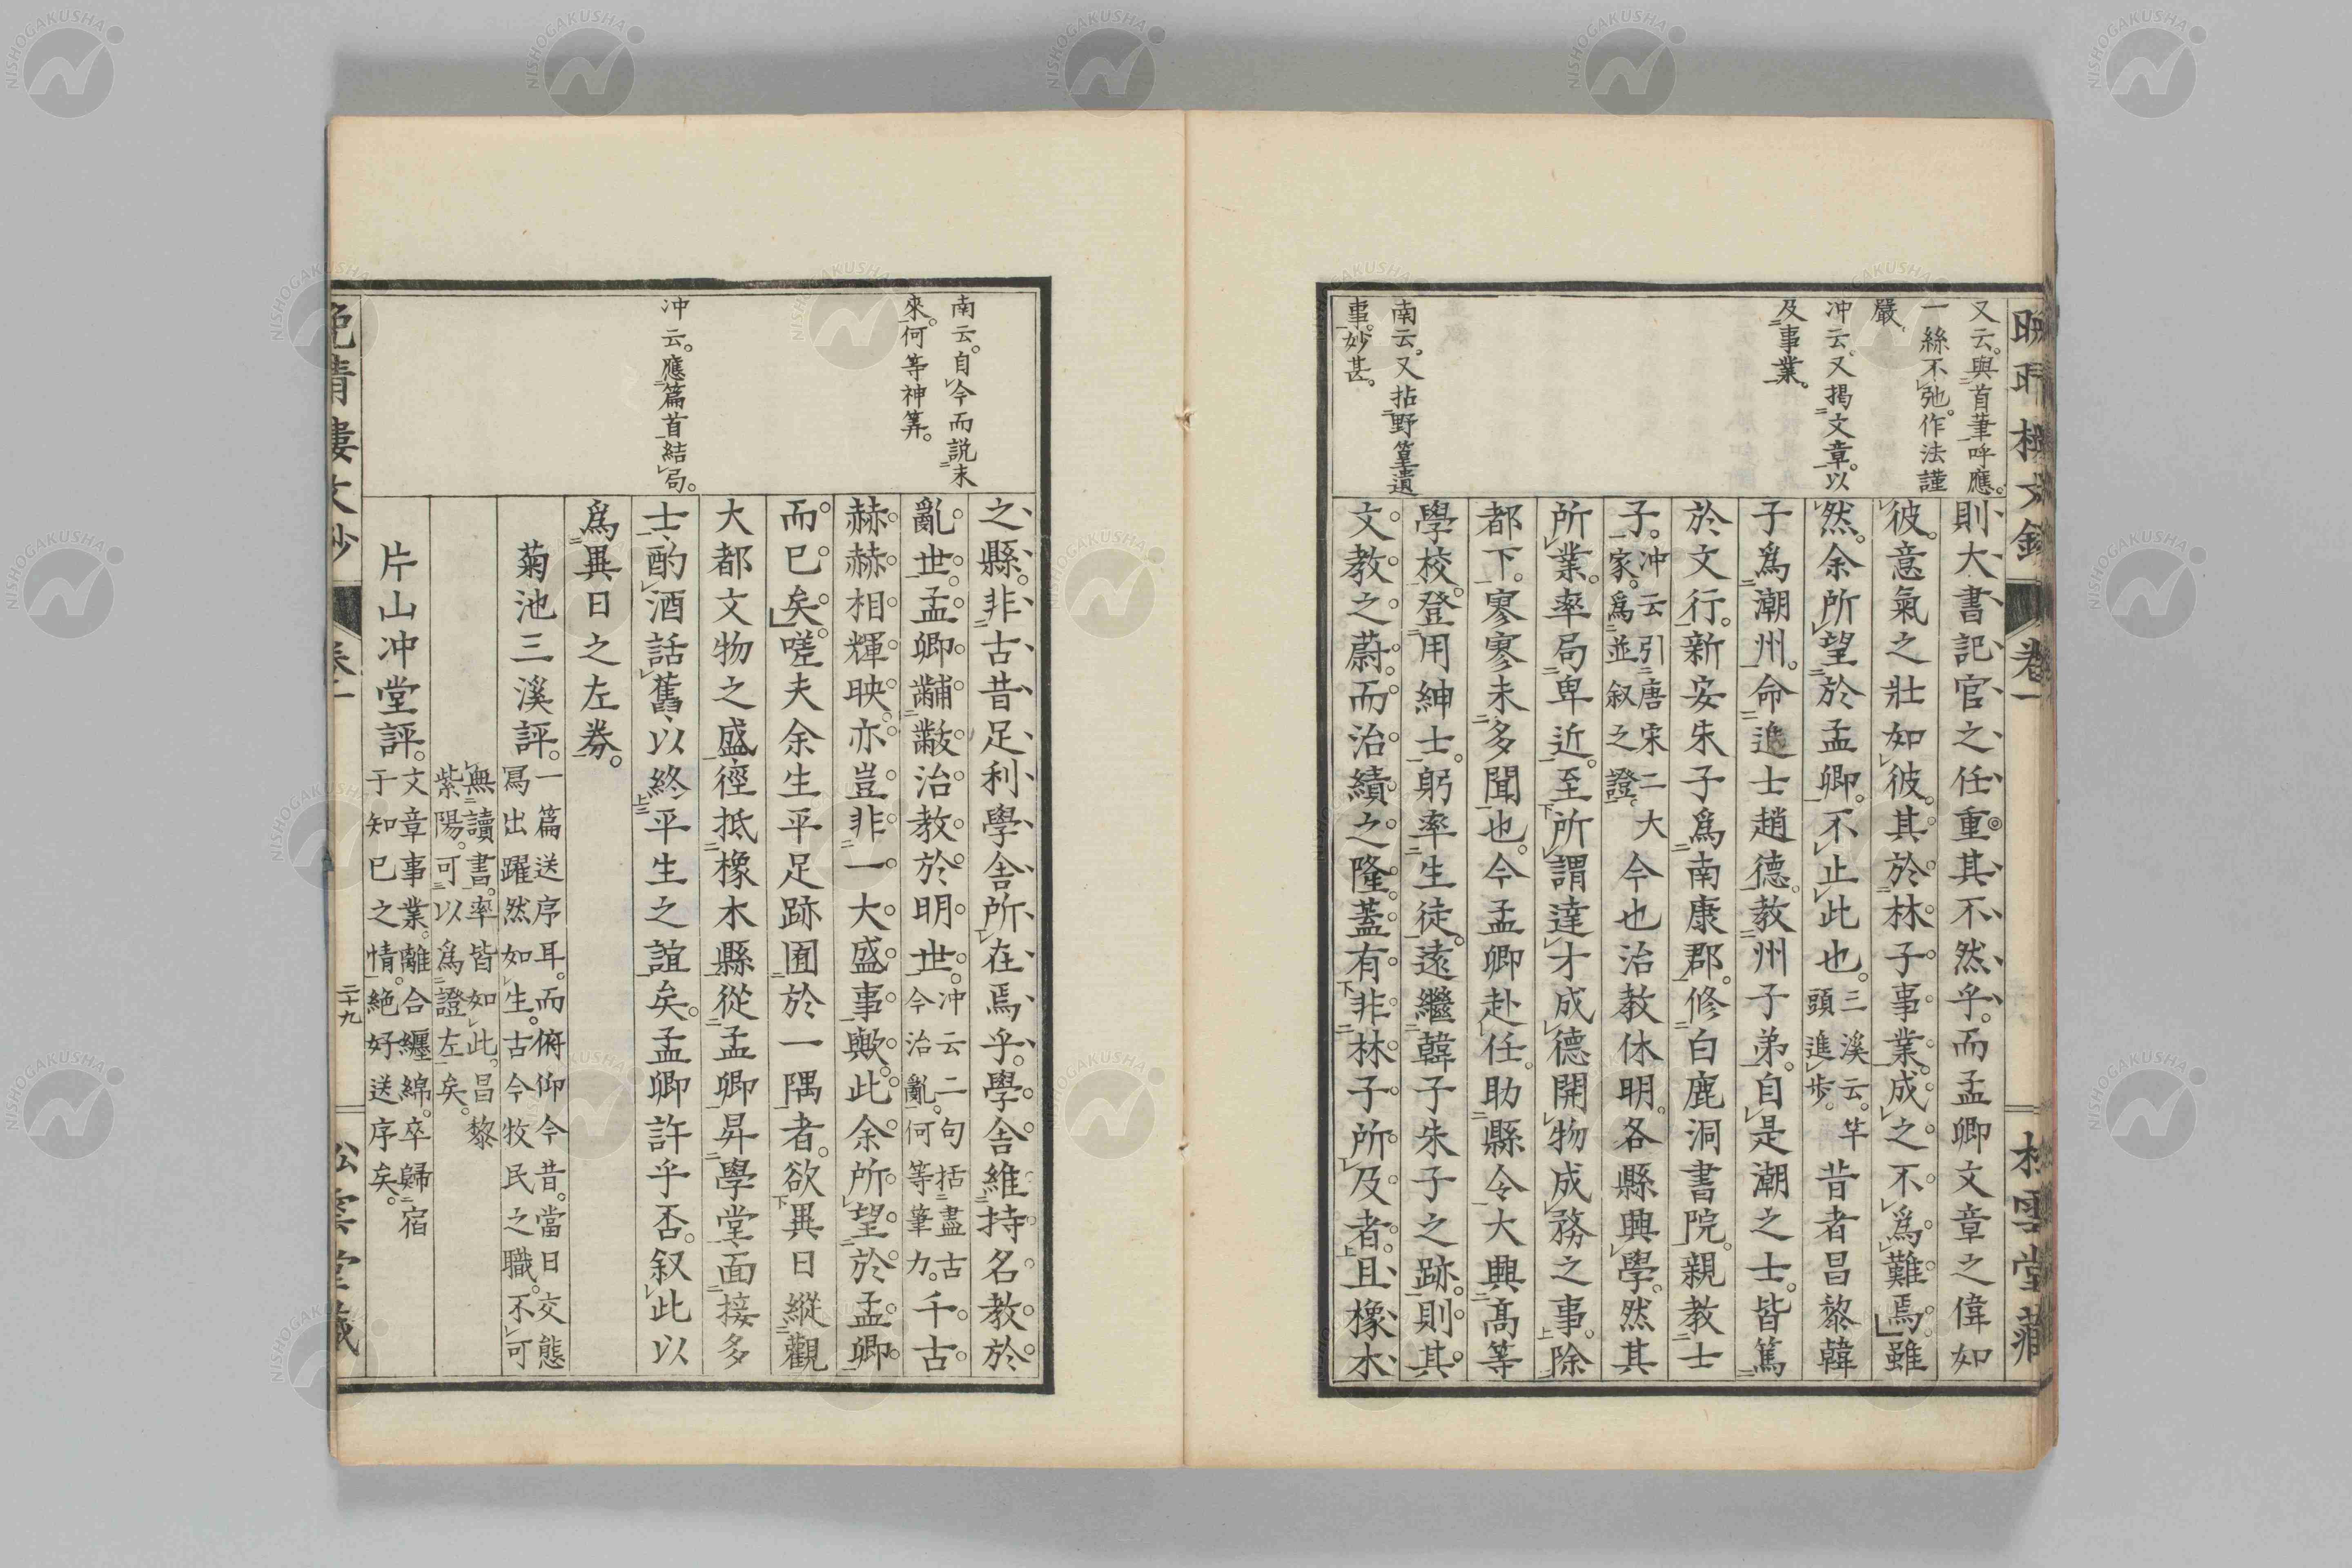 又云。與首筆呼應。
一絲不弛。作法謹
嚴
冲云又揭文章。以
及事業。
南云。又拈野篁遺
事。妙甚。
則大書記官之任重其不然乎。而孟卿文章之偉如
彼。意氣之壯如彼。其於林子事業。成之不爲難焉。雖
然。余所望於孟卿。不止此也。三溪云。竿頭進歩。昔者昌黎韓
子爲潮州。命進士趙德。教州子弟。自是潮之士。皆篤
於文行。新安朱子爲南康郡。修白鹿洞書院。親教士
子。冲云引唐宋二大家。爲並叙之證。今也治教休明。各縣興學。然其
所業。率局卑近。至所謂達才成德開物成務之事。除
都下。寥寥未多聞也。今孟卿赴任。助縣令。大興髙等
學校。登用紳士。躬率生徒。遠繼韓子朱子之跡。則其
文教之蔚。而治績之隆。蓋有非林子所及者。且橡木
卷一
南云。自今而説末
來。何等神筭。
冲云。應篇首結局。
之縣。非古昔足利學舎所在焉乎。學舎維持名教於
亂世。孟卿黼黻治教於明世。冲云二句括盡古今治亂。何等筆力。千古
赫赫相輝映。亦豈非一大盛事歟。此余所望於孟卿
而已矣。嗟夫余生平足跡囿於一隅者。欲異日縱觀
大都文物之盛。徑抵橡木縣。從孟卿昇學堂。面接多
士。酌酒話舊。以終平生之誼矣。孟卿許乎否。叙此以
爲異日之左券。
菊池三溪評。一篇送序耳。而俯仰今昔。當日交態
冩出躍然如生。古今牧民之職。不可
無讀書。率皆如此。昌黎
紫陽。可以爲證左矣。
片山冲堂評。文章事業。離合纏綿。卒歸宿
于知已之情。絶好送序矣。
二十九
NISHOGAKUSHA